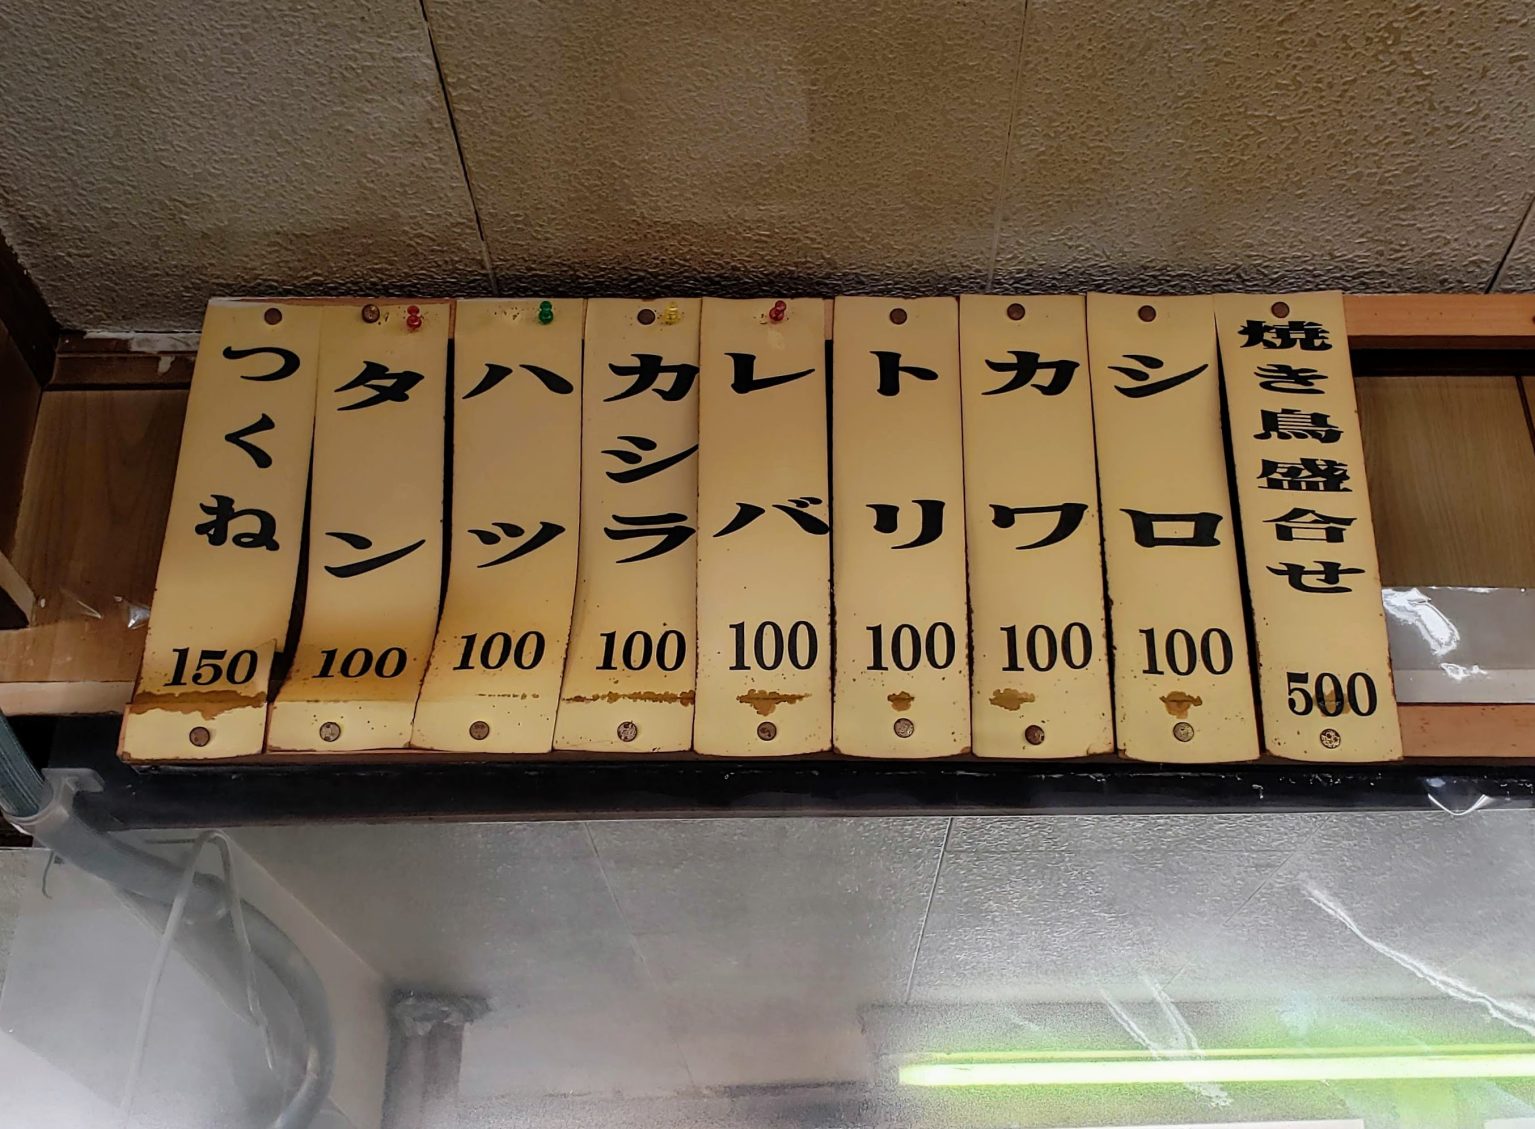 焼き鳥盛合せ 500
シロ 100
カワ 100
トリ 100
レバ 100
カシラ 100
ハツ 100
タン 100
つくね 150